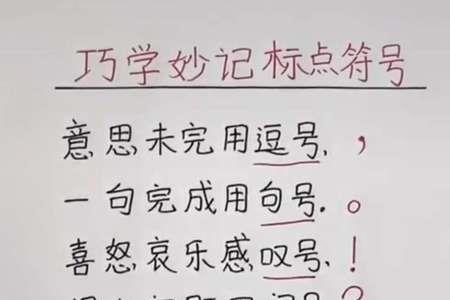 巧学妙记标点符号
意思未完用逗号、，
一句完成用句号.。
喜怒哀乐感叹号、！